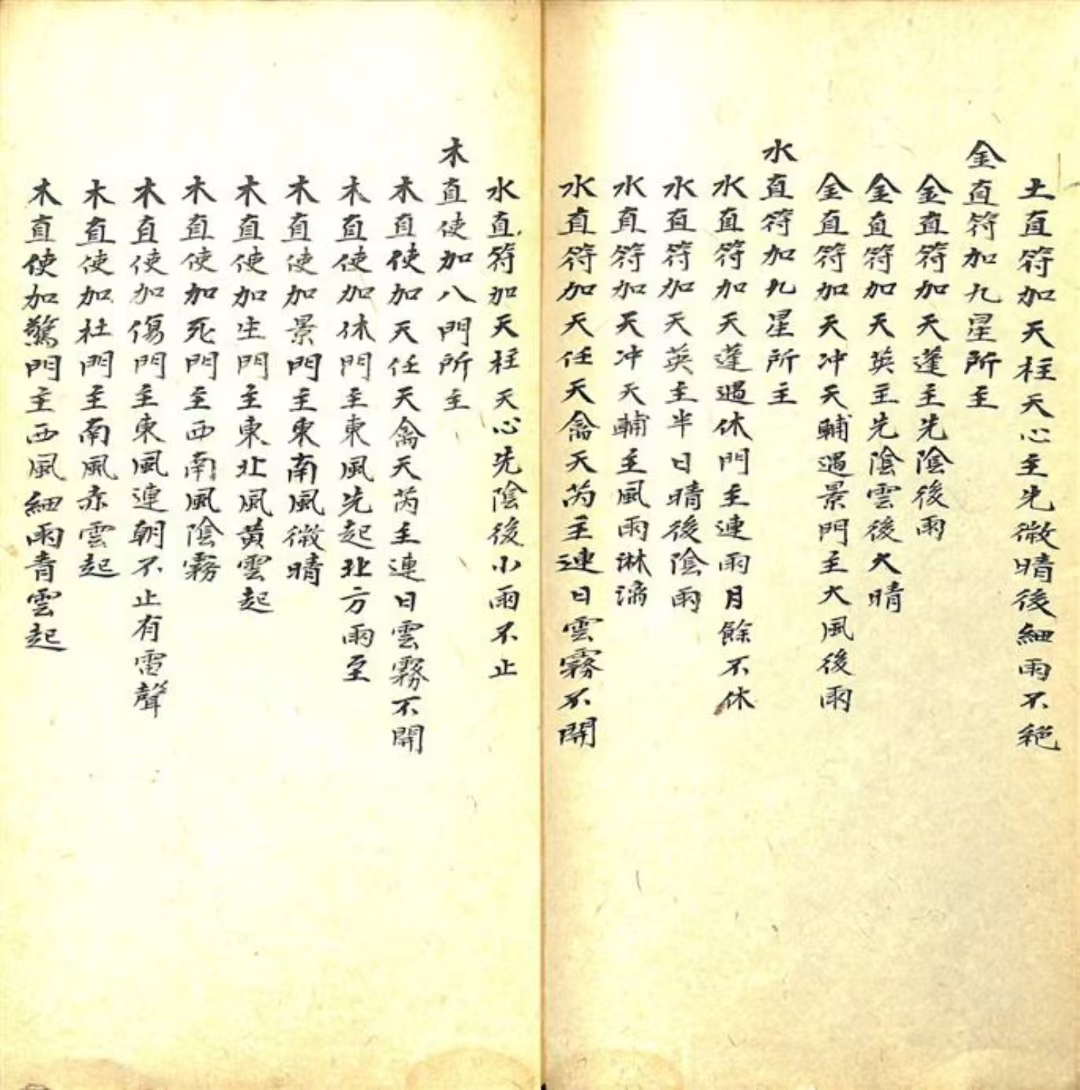 土直符加天柱天心主先微晴後細雨不絕
金直符加九星所主
金直符加天蓬主先陰後雨
金直符加天英主先陰雲後大晴
金直符加天冲天輔遇景門主大風後雨
水直符加九星所主
水直符加天蓬遇休門主連雨月餘不休
水直符加天英主半日晴後陰雨
水直符加天冲天輔主風雨淋漓
水直符加天任天禽天芮主連日雲霧不開
水直符加天柱天心先陰後小雨不止
木直使加八門所主
木直使加天任天禽天芮主連日雲霧不開
木直使加休門主東風先起北方雨至
木直使加景門主東南風微晴
木直使加生門主東北風黃雲起
木直使加死門主西南風陰霧
木直使加傷門主東風連朝不止有雷聲
木直使加杜門主南風赤雲起
木直使加驚門主西風細雨青雲起